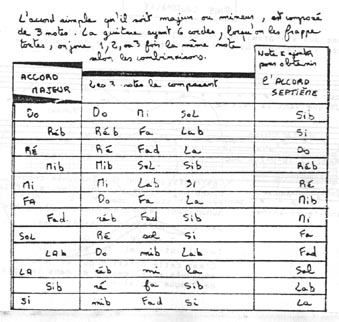 L'accord simple qu'il soit majeur ou mineur, est composé
de 3 notes. La guitare ayant 6 cordes, lorsqu'on les frappe
toutes, on joue 1, 2, ou 3 fois la même note
selon les combinaisons.
Note à ajouter
pour obtenir
L'ACCORD
SEPTIÈME
ACCORD
MAJEUR
Les 3 notes le composant
Do Do Mi Sol Sib
Réb Réb Fa Lab Si
Ré Ré Fad La Do
Mib Mib Sol Sib Réb
Mi Mi Lab Si Ré
Fa Do Fa La Mib
Fad réb Fad Sib Mi
Sol Ré sol Si Fa
Lab Do mib Lab Fad
La réb mi la Sol
Sib ré fa Sib Lab
Si mib Fad Si La